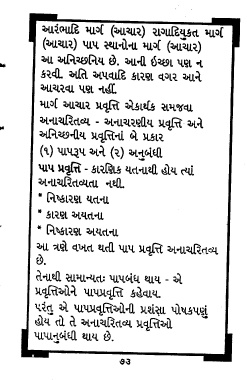 આરંભાદિ માર્ગ (આચાર) રાગાદિયુકત માર્ગ
(આચાર) પાપ સ્થાનોના માર્ગ (આચાર)
આ અનિચ્છનિય છે. આની ઇચ્છા પણ ન
કરવી. અતિ અપવાદિ કારણ વગર આને
આચરવા પણ નહીં.
માર્ગ આચાર પ્રવૃત્તિ એકાર્થક સમજવા
અનાચરિતવ્ય - અનાચરણીય પ્રવૃત્તિ અને
અનિચ્છનીય પ્રવૃત્તિનાં બે પ્રકાર
(૧) પાપરૂપ અને (૨) અનુબંધી
પાપ પ્રવૃત્તિ - કારણિક યતનાથી હોય ત્યાં
અનાચરિતવ્યતા નથી.
* નિષ્કારણ યતના
* કારણ અયતના
* નિષ્કારણ અયતના
આ ત્રણે વખત થતી પાપ પ્રવૃત્તિ અનાચરિતવ્ય
છે.
તેનાથી સામાન્યતઃ પાપબંધ થાય - એ
પ્રવૃત્તિઓને પાપપ્રવૃત્તિ કહેવાય.
પરંતુ એ પાપપ્રવૃત્તિઓની પ્રશંસા પોષકપણું
હોય તો તે અનાચરિતવ્ય પ્રવૃત્તિઓ
પાપાનુબંધી થાય છે.
૭૩